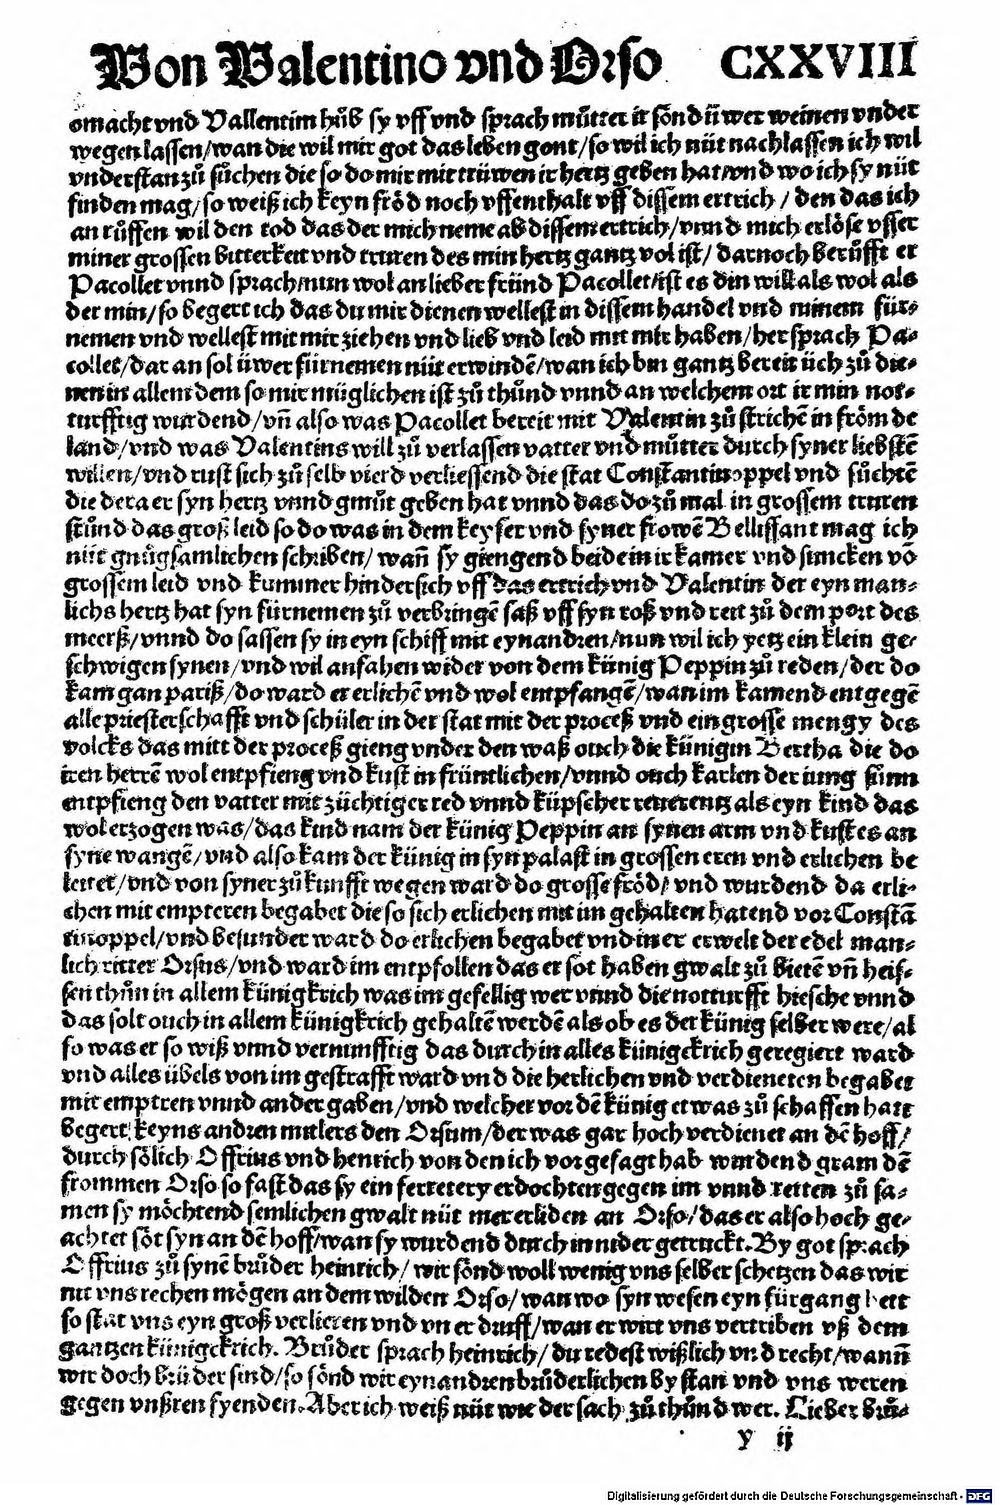 Von Valentino vnd Orso CXXVIII
omacht vnd Vallentim hůb sy vff vnd sprach můtter ir sönd üwer weinen vnder
wegen lassen/wan die wil mir got das leben gont/so wil ich nüt nachlassen ich wil
vnderstan zů sůchen die so do mir mit trüwen ir hertz geben hat/vnd wo ich sy nüt
finden mag/so weiß ich keyn fröd noch vffenthalt vff dissem ertrich/den das ich
an rüffen wil den tod das der mich neme ab dissem ertrich/vnnd mich erlöse vsser
miner grossen bitterkeit vnd truren des min hertz gantz vol ist/darnoch berůfft er
Pacollet vnnd sprach/nun wol an lieber fründ Pacollet/ist es din will als wol als
der min/so beger ich das du mir dienen wellest in dissem handel vnd minem für⸗
nemen vnd wellest mit mir ziehen vnd lieb vnd leid mit mir haben/her sprach Pa⸗
collet/dar an sol üwer fürnemen nüt erwindē/wan ich bin gantz bereit üch zů die⸗
nen in allem dem so mir müglichen ist zů thůnd vnnd an welchem ort ir min not⸗
turfftig wurdend/vn̄ also was Pacollet bereit mit Valentin zů strichē in fröm de
land/vnd was Valentins will zů verlassen vatter vnd můtter durch syner liebstē
willen/vnd rust sich zů selb vierd verliessend die stat Constantinoppel vnd sůchtē
die dera er syn hertz vnnd gmüt geben hat vnnd das do zů mal in grossem truren
stůnd das groß leid so do was in dem keyser vnd syner frowē Bellissant mag ich
nüt gnůgsamlichen schriben/wan̄ sy giengend beide in ir kamer vnd suncken vō
grossem leid vnd kummer hindersich vff das ertrich vnd Valentin der eyn man⸗
lichs hertz hat syn fürnemen zů verbringē saß vff syn roß vnd reit zů dem port des
meerß/vnnd do sassen sy in eyn schiff mit eynandren/nun wil ich yetz ein klein ge⸗
schwigen synen/vnd wil anfahen wider von dem künig Peppin zů reden/der do
kam gan pariß/do ward er erlichē vnd wol entpfangē/wan im kamend entgegē
alle priesterschafft vnd schüler in der stat mit der proceß vnd ein grosse mengy des
volcks das mitt der proceß gieng vnder den waß ouch die künigin Bertha die do
iren herrē wol entpfieng vnd kust in früntlichen/vnnd ouch karlen der iung sunn
entpfieng den vatter mit züchtiger red vnnd hüpscher reuerentz als eyn kind das
wol erzogen was/das kind nam der künig Peppin an synen arm vnd kust es an
syne wangē/vnd also kam der künig in syn palast in grossen eren vnd erlichen be
leitet/vnd von syner zů kunfft wegen ward do grosse fröd/vnd wurdend da erli⸗
chen mit empteren begabet die so sich erlichen mit im gehalten hatend vor Constā
tinoppel/vnd besunder ward do erlichen begabet vnd in er erwelt der edel man⸗
lich ritter Orsus/vnd ward im entpfollen das er sot haben gwalt zů bietē vn̄ heis⸗
sen thůn in allem künigkrich was im gefellig wer vnnd die notturfft hiesche vnnd
das solt ouch in allem künigkrich gehaltē werdē als ob es der künig selber were/al
so was er so wiß vnnd vernunfftig das durch in alles künigckrich geregiert ward
vnd alles übels von im gestrafft ward vnd die herlichen vnd verdieneten begabet
mit emptren vnnd ander gaben/vnd welcher vor dē künig etwas zů schaffen hatt
begert keyns andren mitlers den Orsum/der was gar hoch verdienet an dē hoff/
durch sölich Offrius vnd henrich von den ich vor gesagt hab wurdend gram dē
frommen Orso so fast das sy ein ferretery erdochten gegen im vnnd retten zů sa⸗
men sy möchtend semlichen gwalt nüt mer erliden an Orso/das er also hoch ge⸗
achtet söt syn an dē hoff/wan sy wurdend durch in nider getruckt. By got sprach
Offrius zů synē brůder heinrich/wir sönd woll wenig vns selber schetzen das wir
nit vns rechen mögen an dem wilden Orso/wan wo syn wesen eyn fürgang hett
so stat vns eyn groß verlieren vnd vn er druff/wan er wirt vns vertriben vß dem
gantzen künigckrich. Brůder sprach heinrich/du redest wißlich vnd recht/wann̄
wir doch brüder sind/so sönd wir eynandren brůderlichen by stan vnd vns weren
gegen vnßren fyenden. Aber ich weiß nüt wie der sach zů thůnd wer. Lieber brů⸗
y ij
Digitalisierung gefördert durch die Deutsche Forschungsgemeinschaft - DFG